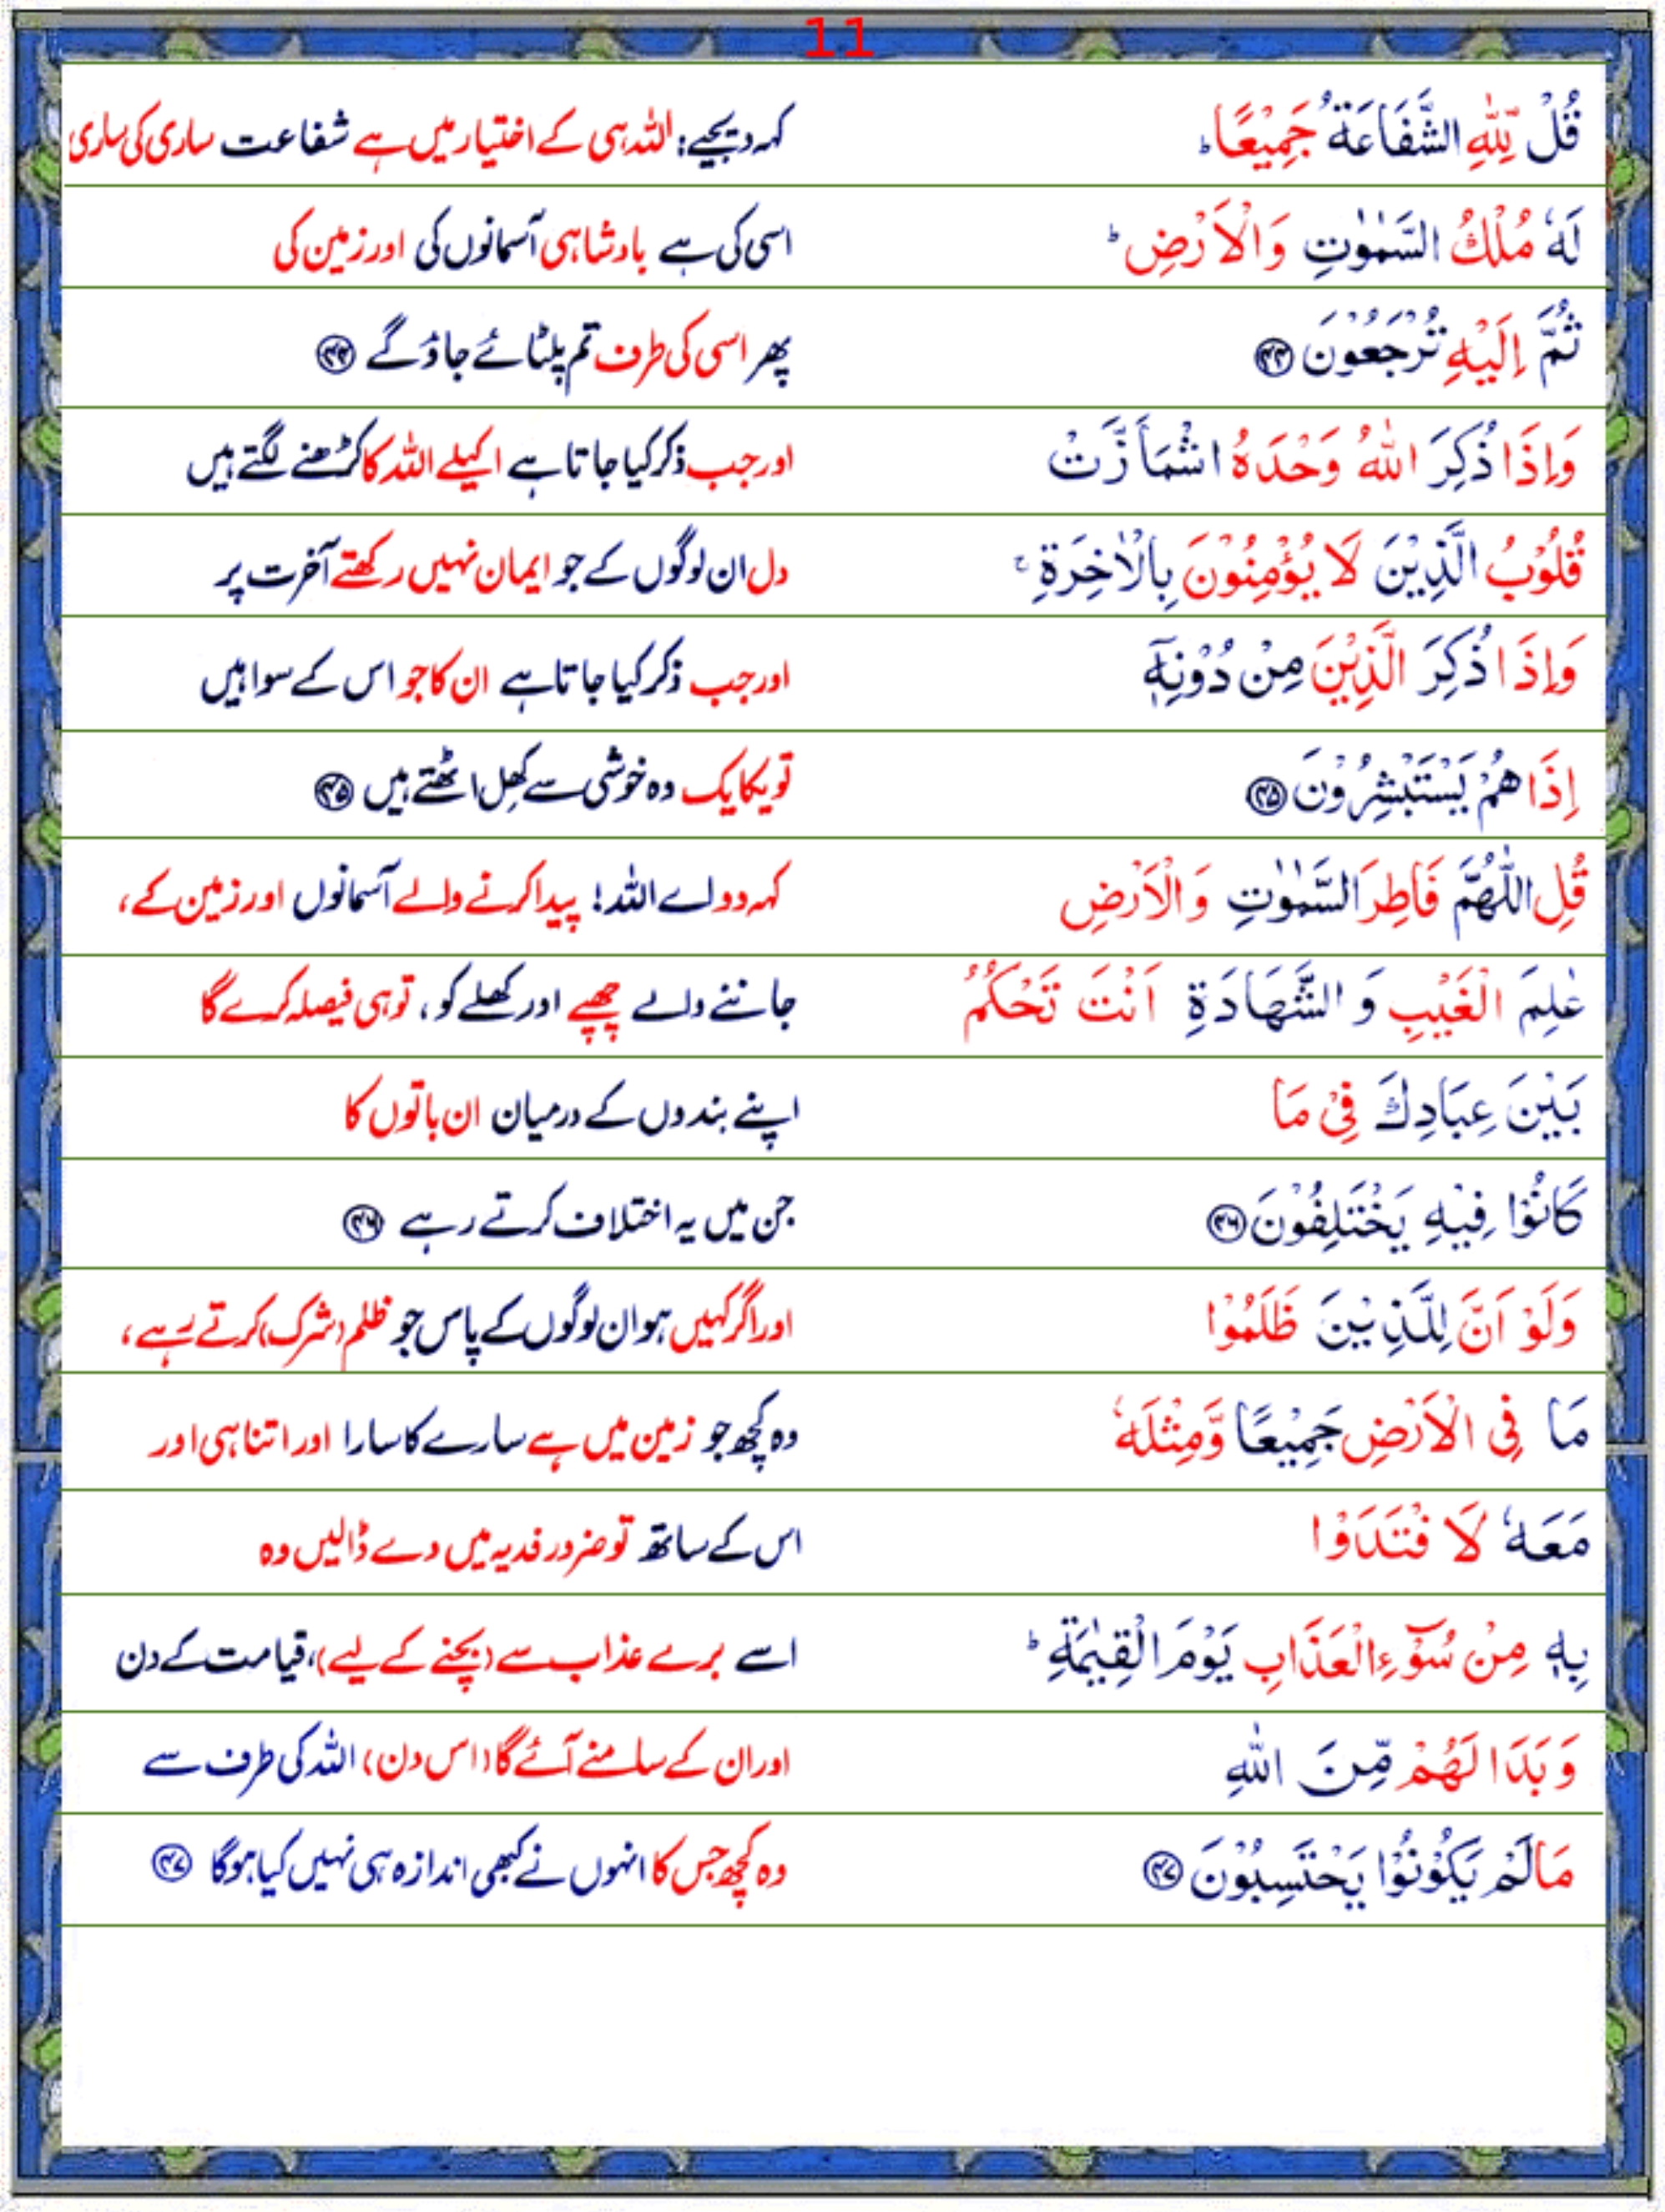 11
قُلْ لِّلّٰهِ الشَّفَاعَةُ جَمِيْعًا ؕ کہہ دیجیے: اللہ ہی کے اختیار میں ہے شفاعت ساری کی ساری
لَهٗ مُلْكُ السَّمٰوٰتِ وَالْاَرْضِ ؕ اسی کی ہے بادشاہی آسمانوں کی اور زمین کی
ثُمَّ اِلَيْهِ تُرْجَعُوْنَ ۴۴ پھر اسی کی طرف تم پلٹائے جاؤ گے ۴۴
وَاِذَا ذُكِرَ اللّٰهُ وَحْدَهُ اشْمَاَزَّتْ اور جب ذکر کیا جاتا ہے اکیلے اللہ کا کڑھنے لگتے ہیں
قُلُوْبُ الَّذِيْنَ لَا يُؤْمِنُوْنَ بِالْاٰخِرَةِ ۚ دل ان لوگوں کے جو ایمان نہیں رکھتے آخرت پر
وَاِذَا ذُكِرَ الَّذِيْنَ مِنْ دُوْنِهٖۤ اور جب ذکر کیا جاتا ہے ان کا جو اس کے سوا ہیں
اِذَا هُمْ يَسْتَبْشِرُوْنَ ۴۵ تو یکایک وہ خوشی سے کھل اٹھتے ہیں ۴۵
قُلِ اللّٰهُمَّ فَاطِرَ السَّمٰوٰتِ وَالْاَرْضِ کہہ دو اے اللہ! پیدا کرنے والے آسمانوں اور زمین کے،
عٰلِمَ الْغَيْبِ وَ الشَّهَادَةِ اَنْتَ تَحْكُمُ جاننے والے چھپے اور کھلے کو، تو ہی فیصلہ کرے گا
بَيْنَ عِبَادِكَ فِيْ مَا اپنے بندوں کے درمیان ان باتوں کا
كَانُوْا فِيْهِ يَخْتَلِفُوْنَ ۴۶ جن میں یہ اختلاف کرتے رہے ۴۶
وَلَوْ اَنَّ لِلَّذِيْنَ ظَلَمُوْا اور اگر کہیں ہو ان لوگوں کے پاس جو ظلم (شرک) کرتے رہے،
مَا فِى الْاَرْضِ جَمِيْعًا وَّمِثْلَهٗ وہ کچھ جو زمین میں ہے سارے کا سارا اور اتنا ہی اور
مَعَهٗ لَا فْتَدَوْا اس کے ساتھ تو ضرور فدیہ میں دے ڈالیں وہ
بِهٖ مِنْ سُوْٓءِ الْعَذَابِ يَوْمَ الْقِيٰمَةِ ؕ اسے برے عذاب سے (بچنے کے لیے)، قیامت کے دن
وَبَدَا لَهُمْ مِّنَ اللّٰهِ اور ان کے سامنے آئے گا (اس دن) اللہ کی طرف سے
مَا لَمْ يَكُوْنُوْا يَحْتَسِبُوْنَ ۴۷ وہ کچھ جس کا انہوں نے کبھی اندازہ ہی نہیں کیا ہوگا ۴۷